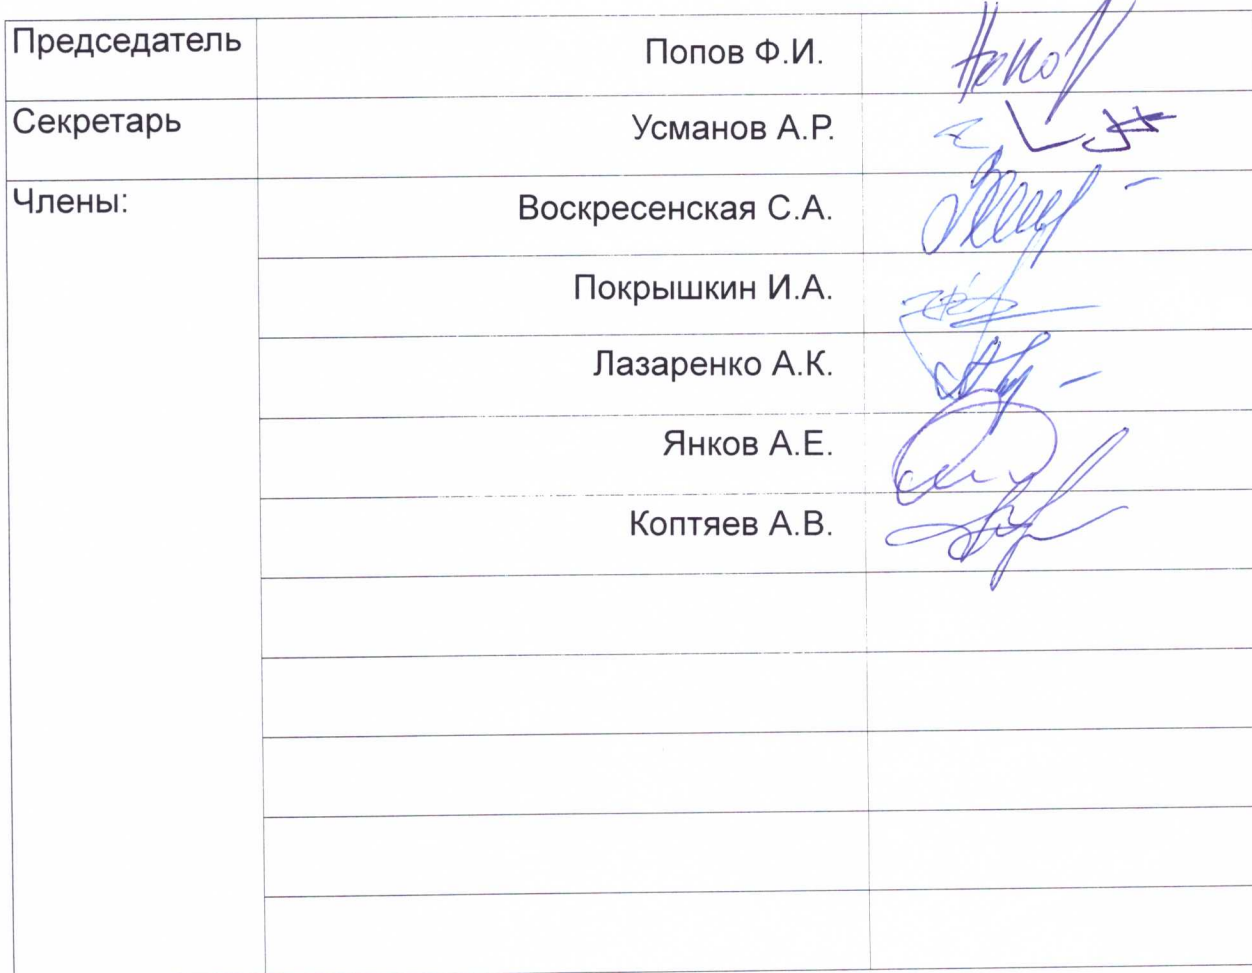 Председатель Попов Ф.И.
Секретарь Усманов А.Р.
Члены: Воскресенская С.А.
Покрышкин И.А.
Лазаренко А.К.
Янков А.Е.
Коптяев А.В.